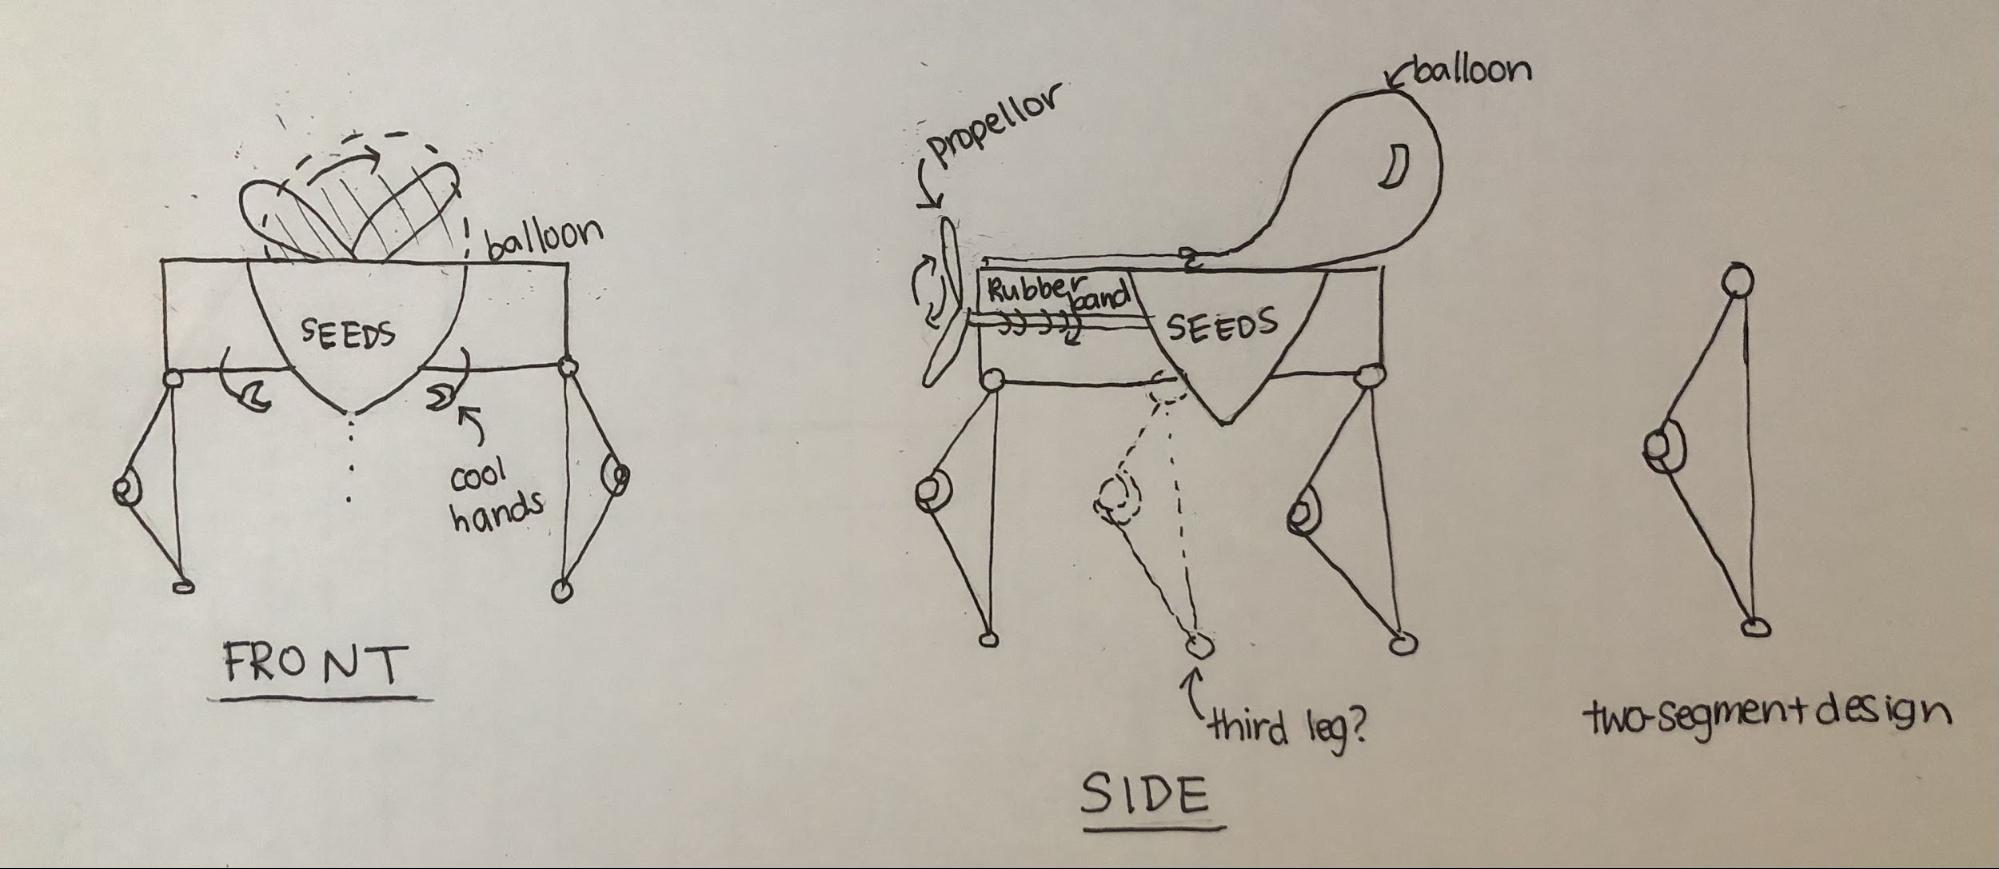 balloon
SEEDS
cool
hands
FRONT
propellor
balloon
Rubber
band
SEEDS
third leg?
SIDE
two-segment design